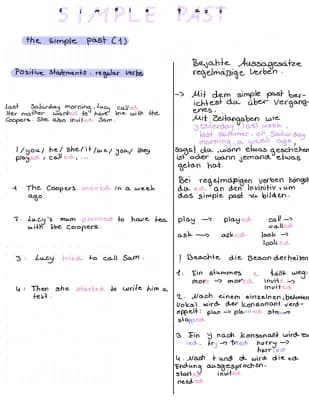 SIMPLE PAST
the simple past (1)
Positive statements: regular verbs
Last Saturday morning, Lucy called.
Her mother wanted to have tea with the
Coopers. She also invited Sam.
I/you/ he/she/it/we/you/ they
played, called, ...
1. The Coopers moved in a week
ago.
2. Lucy's mum planned to have tea
with the Coopers.
3. Lucy tried to call Sam.
4. Then she started to write him a
text.
Bejahte Aussagesätze
regelmäßige Verben.
-> Mit dem simple past ber-
ichtest du über Vergang-
enes.
Mit Zeitangaben wie
yesterday, last week,
last summer, on Saturday
morning, a week ago,
sagst du, wann etwas geschehen
ist oder wann jemand etwas
getan hat.
Bei regelmäßigen verben hängst
du ed an den Invinitiv, um
das simple past zu bilden.
play -> played call ->
called
ask -> asked look ->
looked
! Beachte die Besonderheiten
1. Ein stummes e fällt weg.
move -> moved invite ->
invited
2. Nach einem einzelnen, betonten
Vokal wird der Konsonant verd-
oppelt: plan -> planned stop ->
stopped
3. Ein y nach Konsonant wird zu
ied. try -> tried hurry ->
hurried
4. Nach t und d wird die ed
Endung ausgesprochen.
started invited
needed